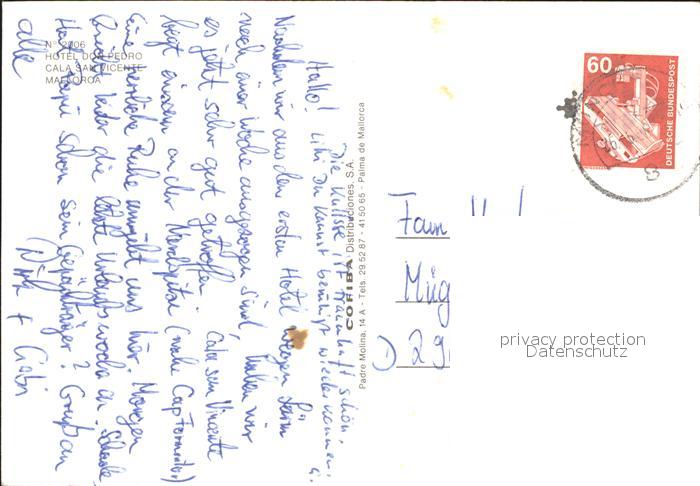 Nº 2006
HOTEL DON PEDRO
CALA SAN VICENTE
MALLORCA
Hallo!
Nachdem wir aus dem ersten Hotel wegen Lärm
nach einer Woche ausgezogen sind, haben wir
es jetzt sehr gut getroffen. Cala san Vincente
liegt aussen an der Nordspitze (nahe Cap Formentor)
Eine herrliche Ruhe umgibt uns hier. Morgen
bricht leider die letzte Urlaubswoche an. Schade.
Hat schon sein Gepäckträger? Gruß an
alle
+ Gabi
Die Küste ist traumhaft schön.
Du kannst beruhigt wiederkommen.
COFIBA Distribuciones, S.A.
Padre Molina, 14 A - Tels. 29 52 87 - 41 50 65 - Palma de Mallorca
60
DEUTSCHE BUNDESPOST
Fam
Müg
29
privacy protection
Datenschutz